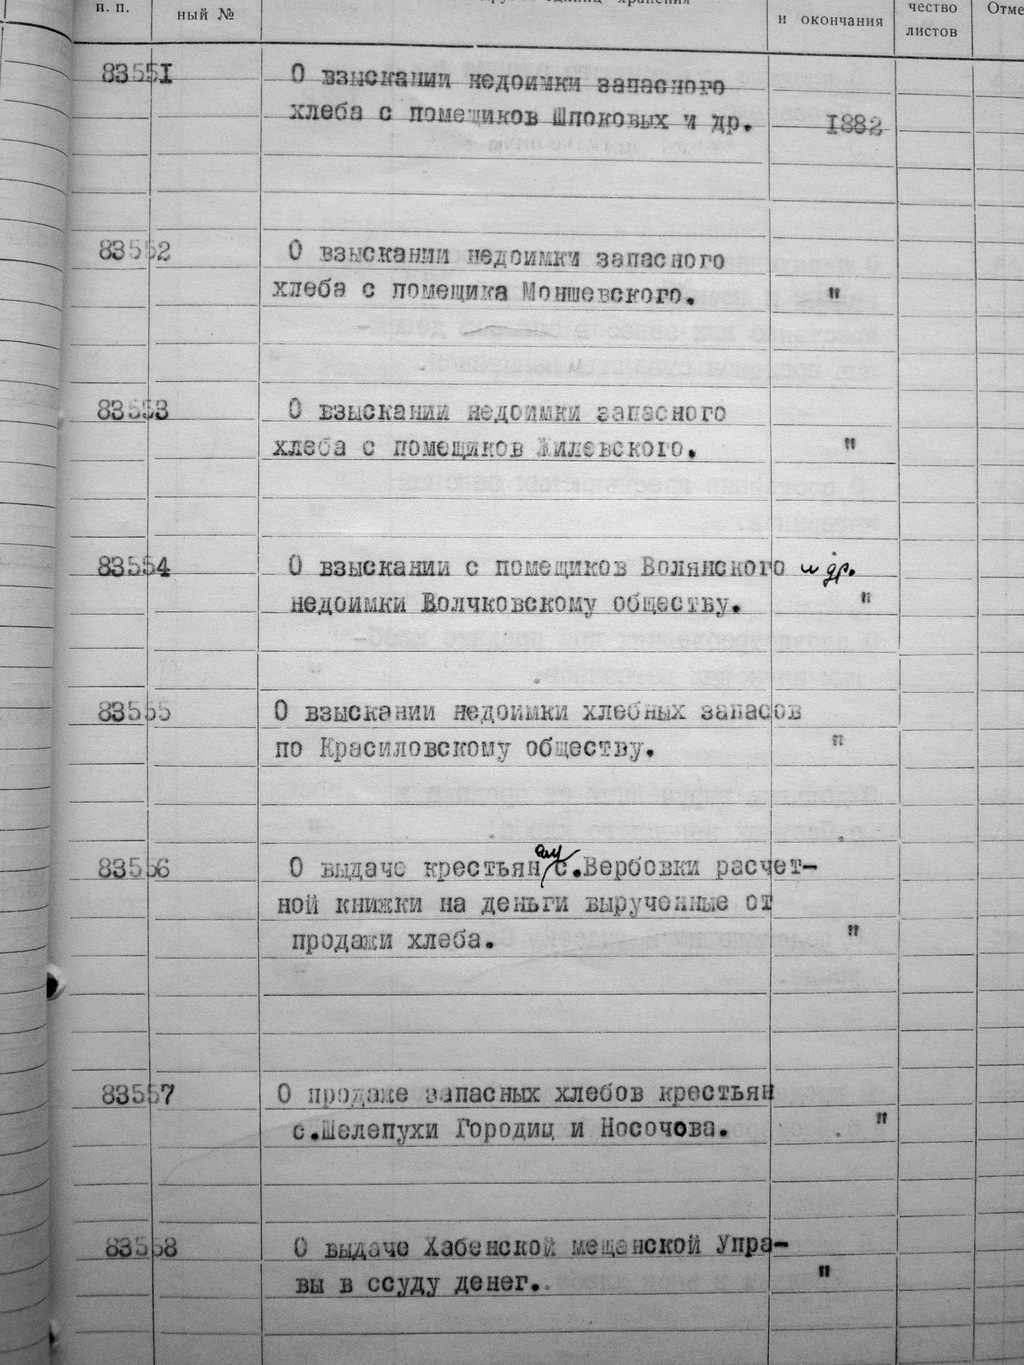 п. п.
ный №
хранения
и окончания
чество
листов
Отме
83551 О взыскании недоимки запасного
хлеба с помещиков Шпоковых и др. 1882
83552 О взыскании недоимки запасного
хлеба с помещика Моншевского. "
83553 О взыскании недоимки запасного
хлеба с помещиков Жилевского. "
83554 О взыскании с помещиков Волянского и др.
недоимки Волчковскому обществу. "
83555 О взыскании недоимки хлебных запасов
по Красиловскому обществу. "
83556 О выдаче крестьянам с.Вербовки расчет-
ной книжки на деньги вырученные от
продажи хлеба. "
83557 О продаже запасных хлебов крестьян
с.Шелепухи Городищ и Носочова. "
83558 О выдаче Хабенской мещанской Упра-
вы в ссуду денег. "